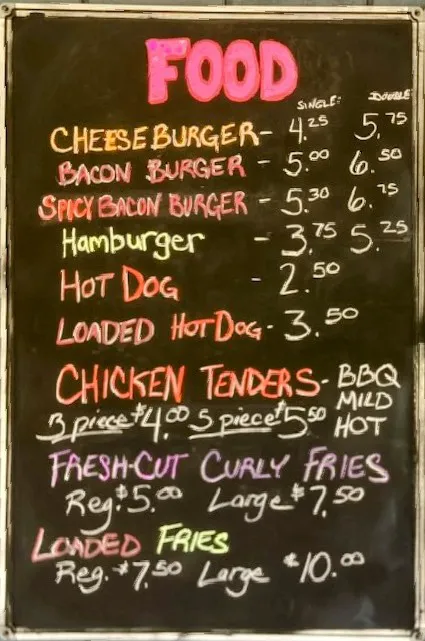 FOOD
SINGLE: DOUBLE
CHEESEBURGER- 4.25 5.75
BACON BURGER - 5.00 6.50
SPICY BACON BURGER - 5.30 6.75
Hamburger - 3.75 5.25
HOT DOG - 2.50
LOADED HOT DOG- 3.50
CHICKEN TENDERS- BBQ
MILD
3 piece $4.00 5 piece $5.50 HOT
FRESH-CUT CURLY FRIES
Reg. $5.00 Large $7.50
LOADED FRIES
Reg. $7.50 Large $10.00